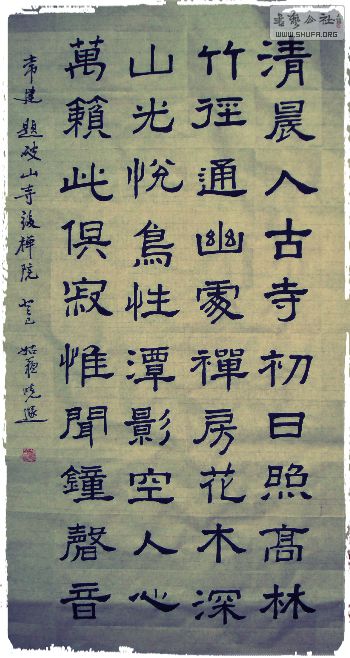 清晨入古寺初日照高林
竹徑通幽處禪房花木深
山光悅鳥性潭影空人心
萬籟此俱寂惟聞鐘磬音
常建 題破山寺後禪院 癸巳
書艺公社
WWW.SHUFA.ORG